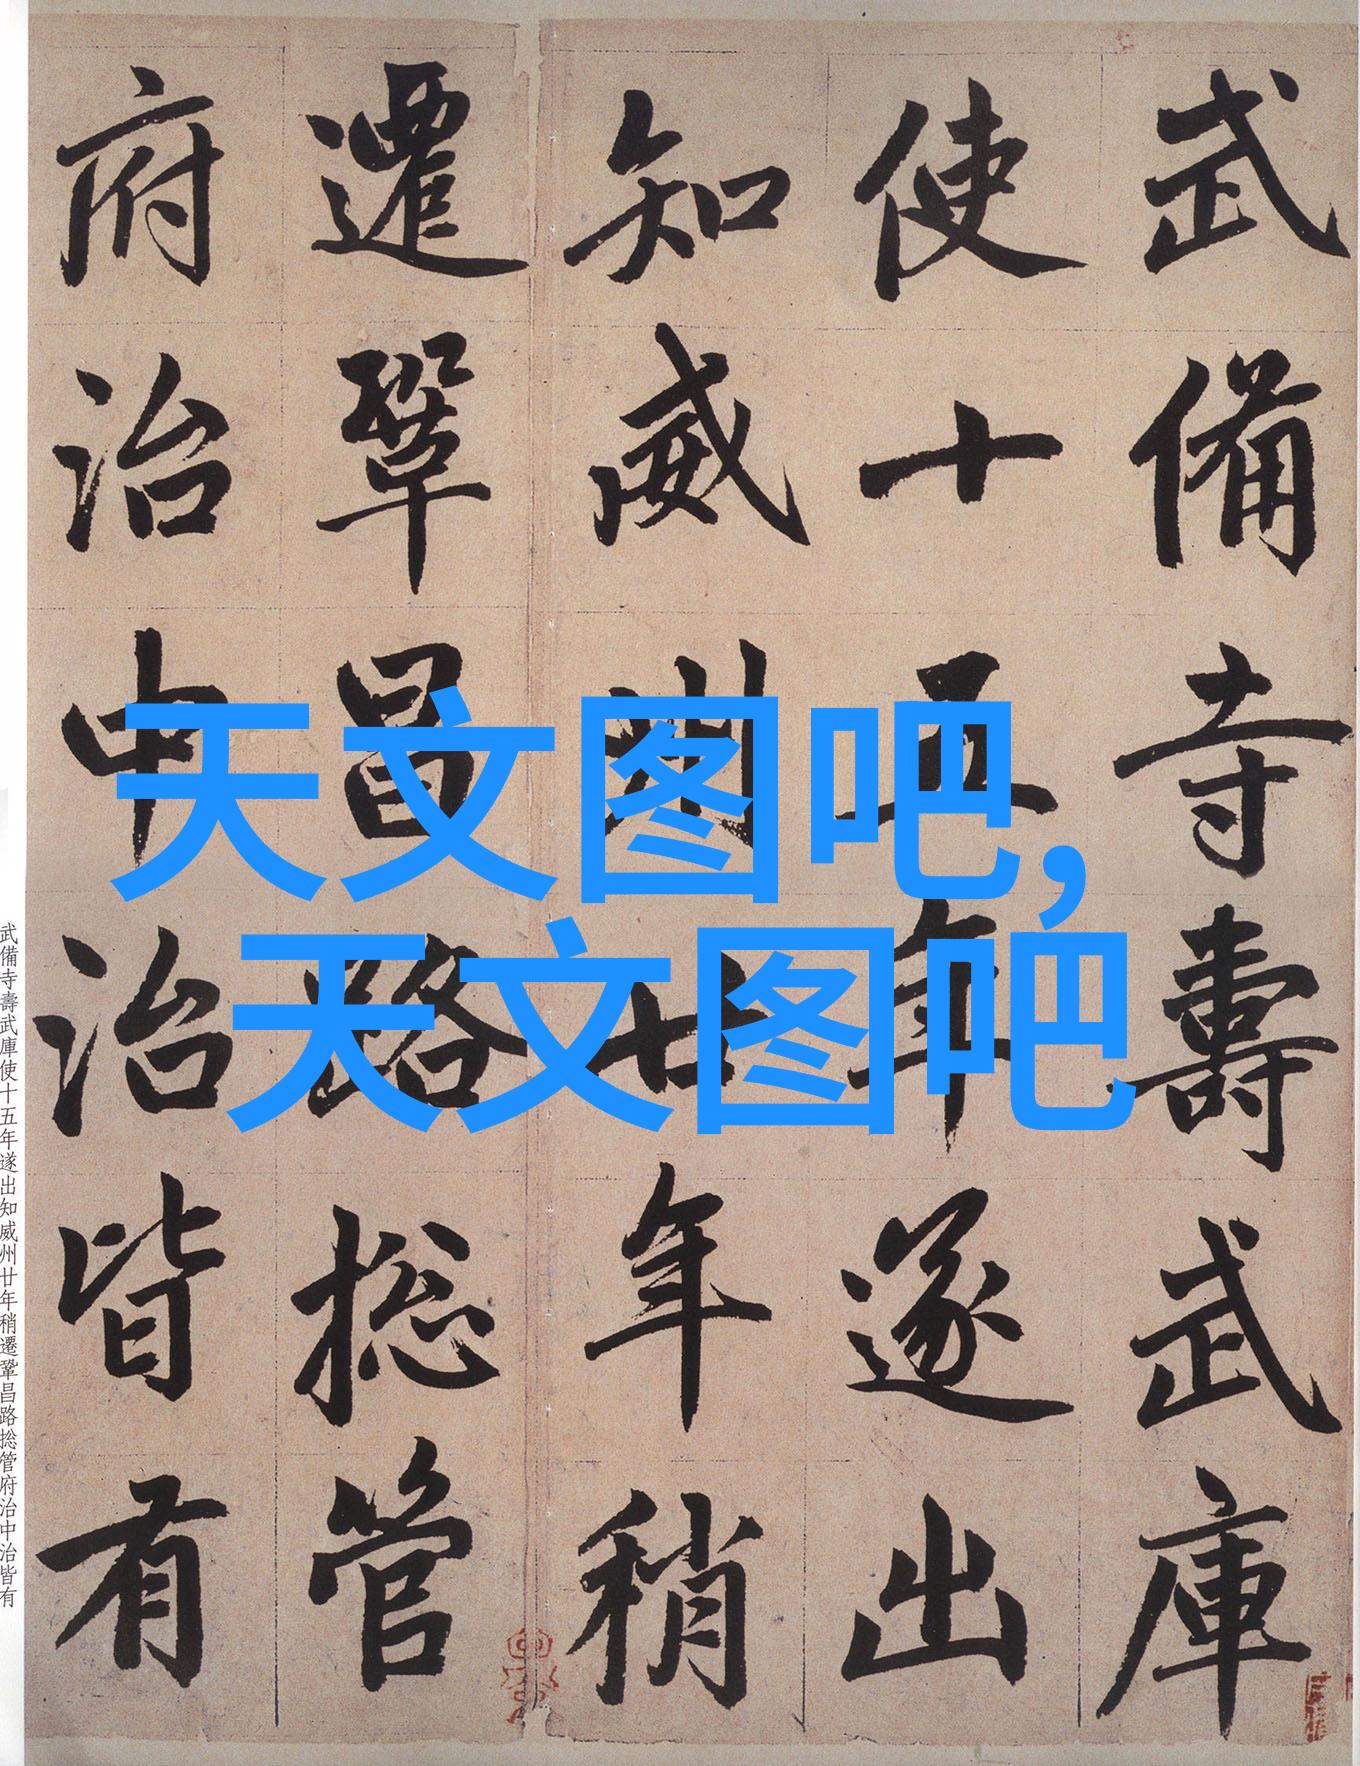 武備寺壽武庫
使十五年遂出
知威州廿年稍
遷鞏昌路捴管
府治中治皆有
天文图吧,
天文图吧
武備寺壽武庫使十五年遂出知威州廿年稍遷鞏昌路捴管府治中治皆有